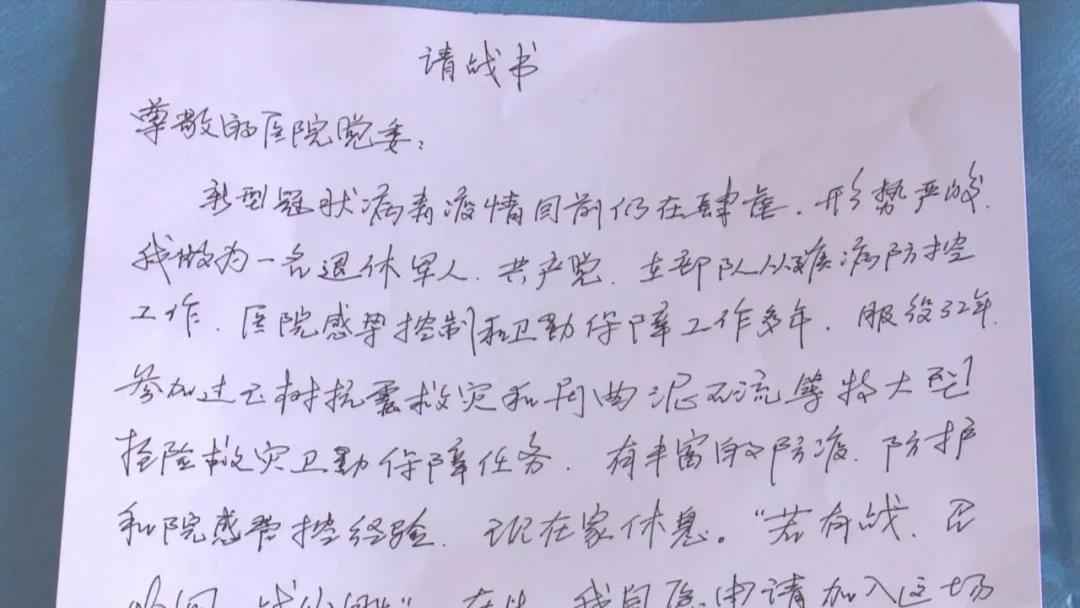 请战书
尊敬的医院党委：
新型冠状病毒疫情目前仍在肆虐，形势严峻，
我做为一名退休军人、共产党，在部队从事疾病防控
工作，医院感染控制和卫勤保障工作多年，服役32年，
参加过玉树抗震救灾和舟曲泥石流等特大型
抢险救灾卫勤保障任务，有丰富的防疫、防护
和院感防控经验，现在家休息。“若有战，召
在此，我自愿申请加入这场